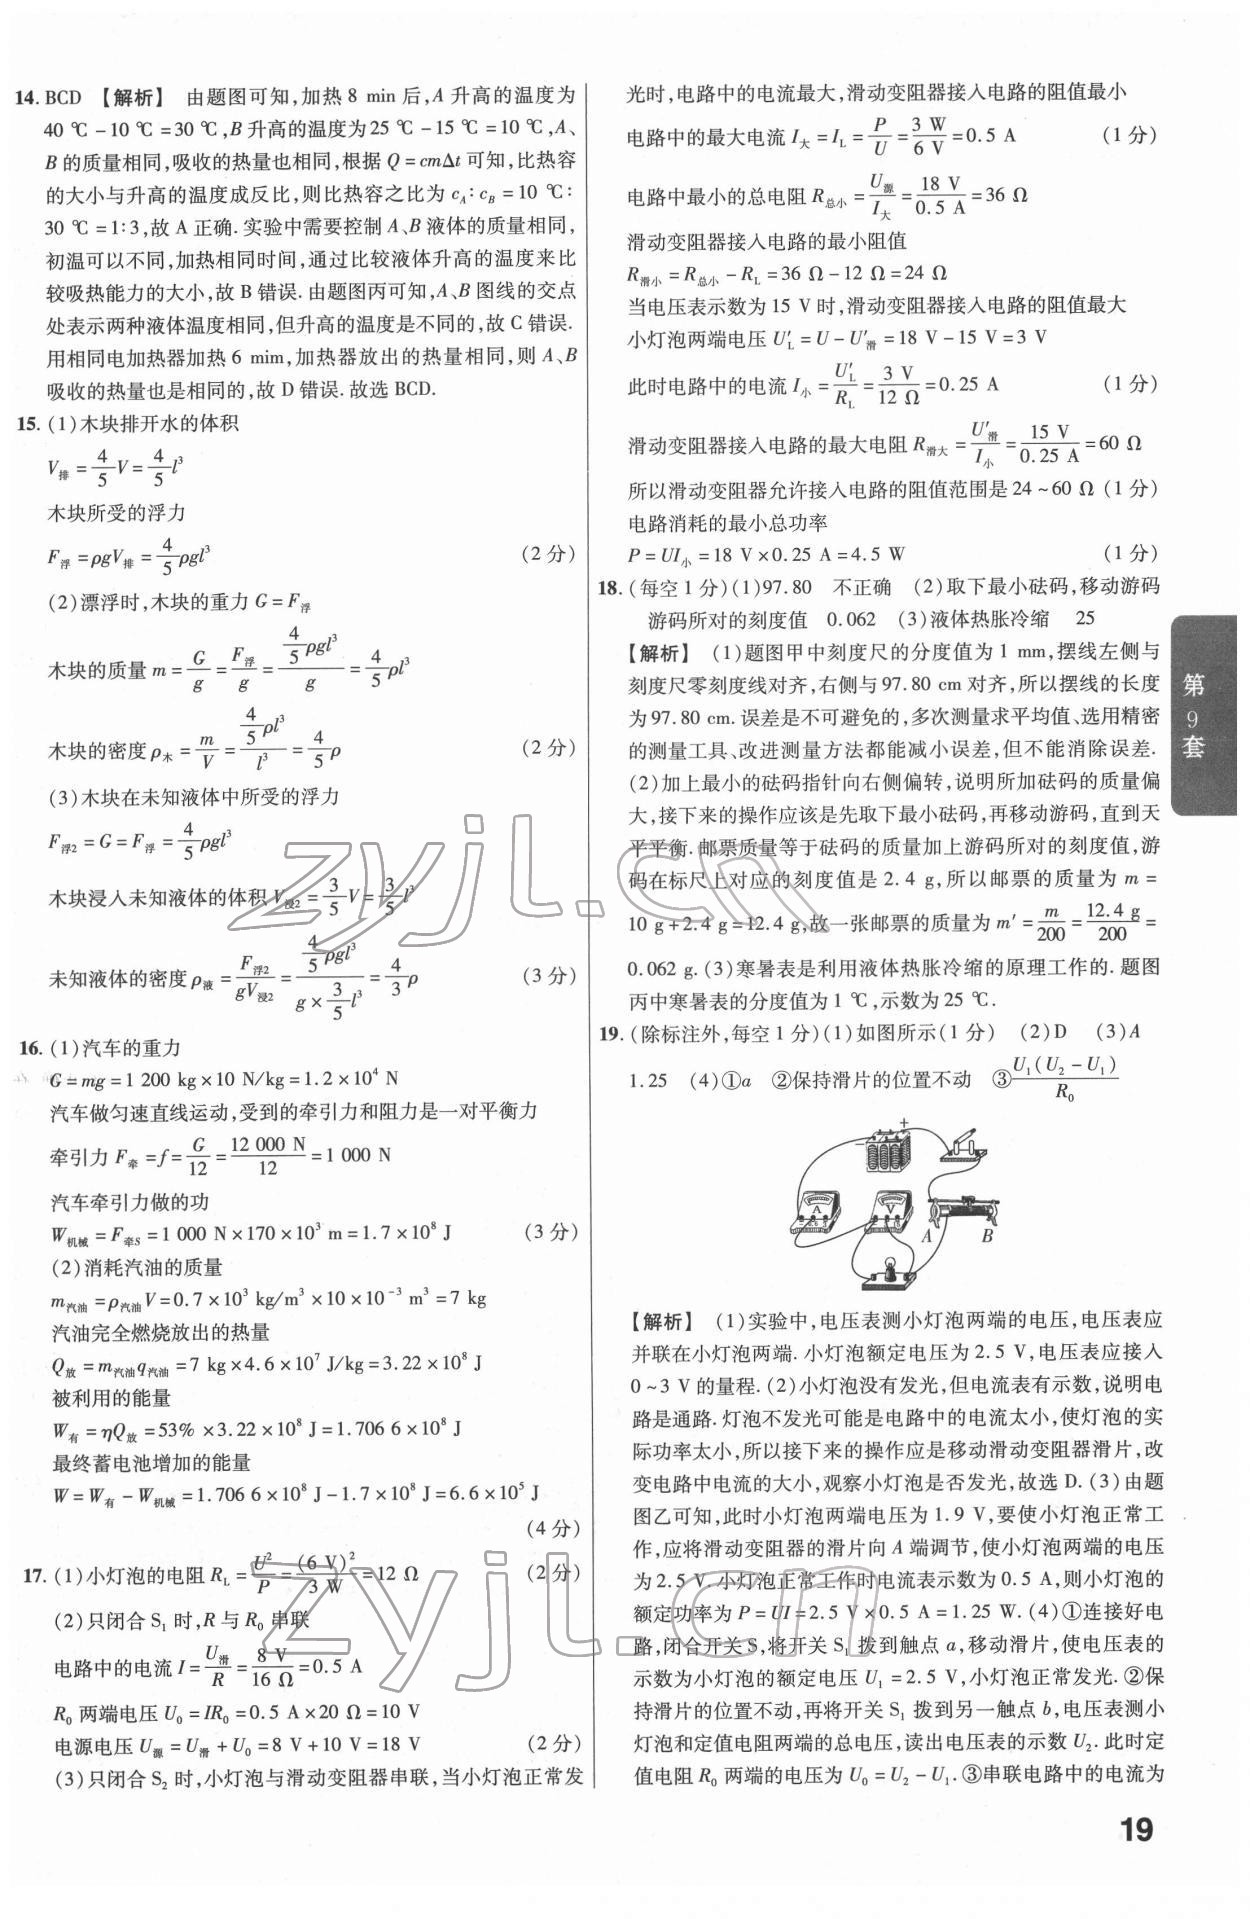 14. BCD 【解析】 由题图可知,加热 8 min 后,A 升高的温度为
40 ℃－10 ℃＝30 ℃,B 升高的温度为 25 ℃－15 ℃＝10 ℃,A、
B 的质量相同,吸收的热量也相同,根据 Q＝cmΔt 可知,比热容
的大小与升高的温度成反比,则比热容之比为 c_A∶c_B＝10 ℃∶
30 ℃＝1∶3,故 A 正确. 实验中需要控制 A、B 液体的质量相同,
初温可以不同,加热相同时间,通过比较液体升高的温度来比
较吸热能力的大小,故 B 错误. 由题图丙可知,A、B 图线的交点
处表示两种液体温度相同,但升高的温度是不同的,故 C 错误.
用相同电加热器加热 6 mim,加热器放出的热量相同,则 A、B
吸收的热量也是相同的,故 D 错误. 故选 BCD.
15. (1)木块排开水的体积
V排＝4/5 V＝4/5 l³
木块所受的浮力
F浮＝ρgV排＝4/5 ρgl³ (2 分)
(2)漂浮时,木块的重力 G＝F浮
木块的质量 m＝G/g＝F浮/g＝(4/5 ρgl³)/g＝4/5 ρl³
木块的密度 ρ木＝m/V＝(4/5 ρl³)/l³＝4/5 ρ (2 分)
(3)木块在未知液体中所受的浮力
F浮2＝G＝F浮＝4/5 ρgl³
木块浸入未知液体的体积 V浸2＝3/5 V＝3/5 l³
未知液体的密度 ρ液＝F浮2/(gV浸2)＝(4/5 ρgl³)/(g×3/5 l³)＝4/3 ρ (3 分)
16. (1)汽车的重力
G＝mg＝1 200 kg×10 N/kg＝1.2×10⁴ N
汽车做匀速直线运动,受到的牵引力和阻力是一对平衡力
牵引力 F牵＝f＝G/12＝12 000 N/12＝1 000 N
汽车牵引力做的功
W机械＝F牵s＝1 000 N×170×10³ m＝1.7×10⁸ J (3 分)
(2)消耗汽油的质量
m汽油＝ρ汽油V＝0.7×10³ kg/m³×10×10⁻³ m³＝7 kg
汽油完全燃烧放出的热量
Q放＝m汽油q汽油＝7 kg×4.6×10⁷ J/kg＝3.22×10⁸ J
被利用的能量
W有＝ηQ放＝53%×3.22×10⁸ J＝1.706 6×10⁸ J
最终蓄电池增加的能量
W＝W有－W机械＝1.706 6×10⁸ J－1.7×10⁸ J＝6.6×10⁵ J
(4 分)
17. (1)小灯泡的电阻 R_L＝U²/P＝(6 V)²/3 W＝12 Ω (2 分)
(2)只闭合 S₁ 时,R 与 R₀ 串联
电路中的电流 I＝U滑/R＝8 V/16 Ω＝0.5 A
R₀ 两端电压 U₀＝IR₀＝0.5 A×20 Ω＝10 V
电源电压 U源＝U滑＋U₀＝8 V＋10 V＝18 V (2 分)
(3)只闭合 S₂ 时,小灯泡与滑动变阻器串联,当小灯泡正常发
光时,电路中的电流最大,滑动变阻器接入电路的阻值最小
电路中的最大电流 I大＝I_L＝P/U＝3 W/6 V＝0.5 A (1 分)
电路中最小的总电阻 R总小＝U源/I大＝18 V/0.5 A＝36 Ω
滑动变阻器接入电路的最小阻值
R滑小＝R总小－R_L＝36 Ω－12 Ω＝24 Ω
当电压表示数为 15 V 时,滑动变阻器接入电路的阻值最大
小灯泡两端电压 U′_L＝U－U′滑＝18 V－15 V＝3 V
此时电路中的电流 I小＝U′_L/R_L＝3 V/12 Ω＝0.25 A (1 分)
滑动变阻器接入电路的最大电阻 R滑大＝U′滑/I小＝15 V/0.25 A＝60 Ω
所以滑动变阻器允许接入电路的阻值范围是 24～60 Ω (1 分)
电路消耗的最小总功率
P＝UI小＝18 V×0.25 A＝4.5 W (1 分)
18. (每空 1 分)(1)97.80 不正确 (2)取下最小砝码,移动游码
游码所对的刻度值 0.062 (3)液体热胀冷缩 25
【解析】 (1)题图甲中刻度尺的分度值为 1 mm,摆线左侧与
刻度尺零刻度线对齐,右侧与 97.80 cm 对齐,所以摆线的长度
为 97.80 cm. 误差是不可避免的,多次测量求平均值、选用精密
的测量工具、改进测量方法都能减小误差,但不能消除误差.
(2)加上最小的砝码指针向右侧偏转,说明所加砝码的质量偏
大,接下来的操作应该是先取下最小砝码,再移动游码,直到天
平平衡. 邮票质量等于砝码的质量加上游码所对的刻度值,游
码在标尺上对应的刻度值是 2.4 g,所以邮票的质量为 m＝
10 g＋2.4 g＝12.4 g,故一张邮票的质量为 m′＝m/200＝12.4 g/200＝
0.062 g. (3)寒暑表是利用液体热胀冷缩的原理工作的. 题图
丙中寒暑表的分度值为 1 ℃,示数为 25 ℃.
19. (除标注外,每空 1 分)(1)如图所示(1 分) (2)D (3)A
1.25 (4)①a ②保持滑片的位置不动 ③U₁(U₂－U₁)/R₀
－ ＋
A V
A B
【解析】 (1)实验中,电压表测小灯泡两端的电压,电压表应
并联在小灯泡两端. 小灯泡额定电压为 2.5 V,电压表应接入
0～3 V 的量程. (2)小灯泡没有发光,但电流表有示数,说明电
路是通路. 灯泡不发光可能是电路中的电流太小,使灯泡的实
际功率太小,所以接下来的操作应是移动滑动变阻器滑片,改
变电路中电流的大小,观察小灯泡是否发光,故选 D. (3)由题
图乙可知,此时小灯泡两端电压为 1.9 V,要使小灯泡正常工
作,应将滑动变阻器的滑片向 A 端调节,使小灯泡两端的电压
为 2.5 V. 小灯泡正常工作时电流表示数为 0.5 A,则小灯泡的
额定功率为 P＝UI＝2.5 V×0.5 A＝1.25 W. (4)①连接好电
路,闭合开关 S,将开关 S₁ 拨到触点 a,移动滑片,使电压表的
示数为小灯泡的额定电压 U₁＝2.5 V,小灯泡正常发光. ②保
持滑片的位置不动,再将开关 S₁ 拨到另一触点 b,电压表测小
灯泡和定值电阻两端的总电压,读出电压表的示数 U₂. 此时定
值电阻 R₀ 两端的电压为 U₀＝U₂－U₁. ③串联电路中的电流为
第9套
19
zyjl.cn
zyjl.cn